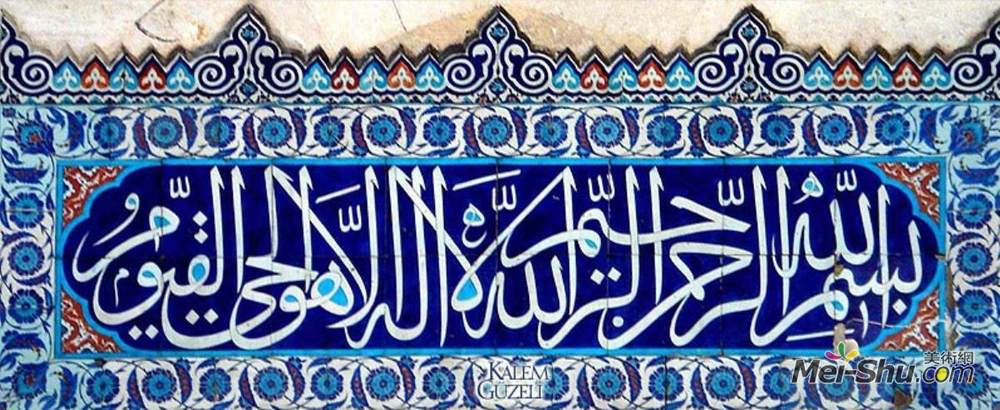 بسم الله الرحمن الرحيم الله لا اله الا هو الحي القيوم
KALEM
GÜZELİ
美術網
Mei-Shu.com